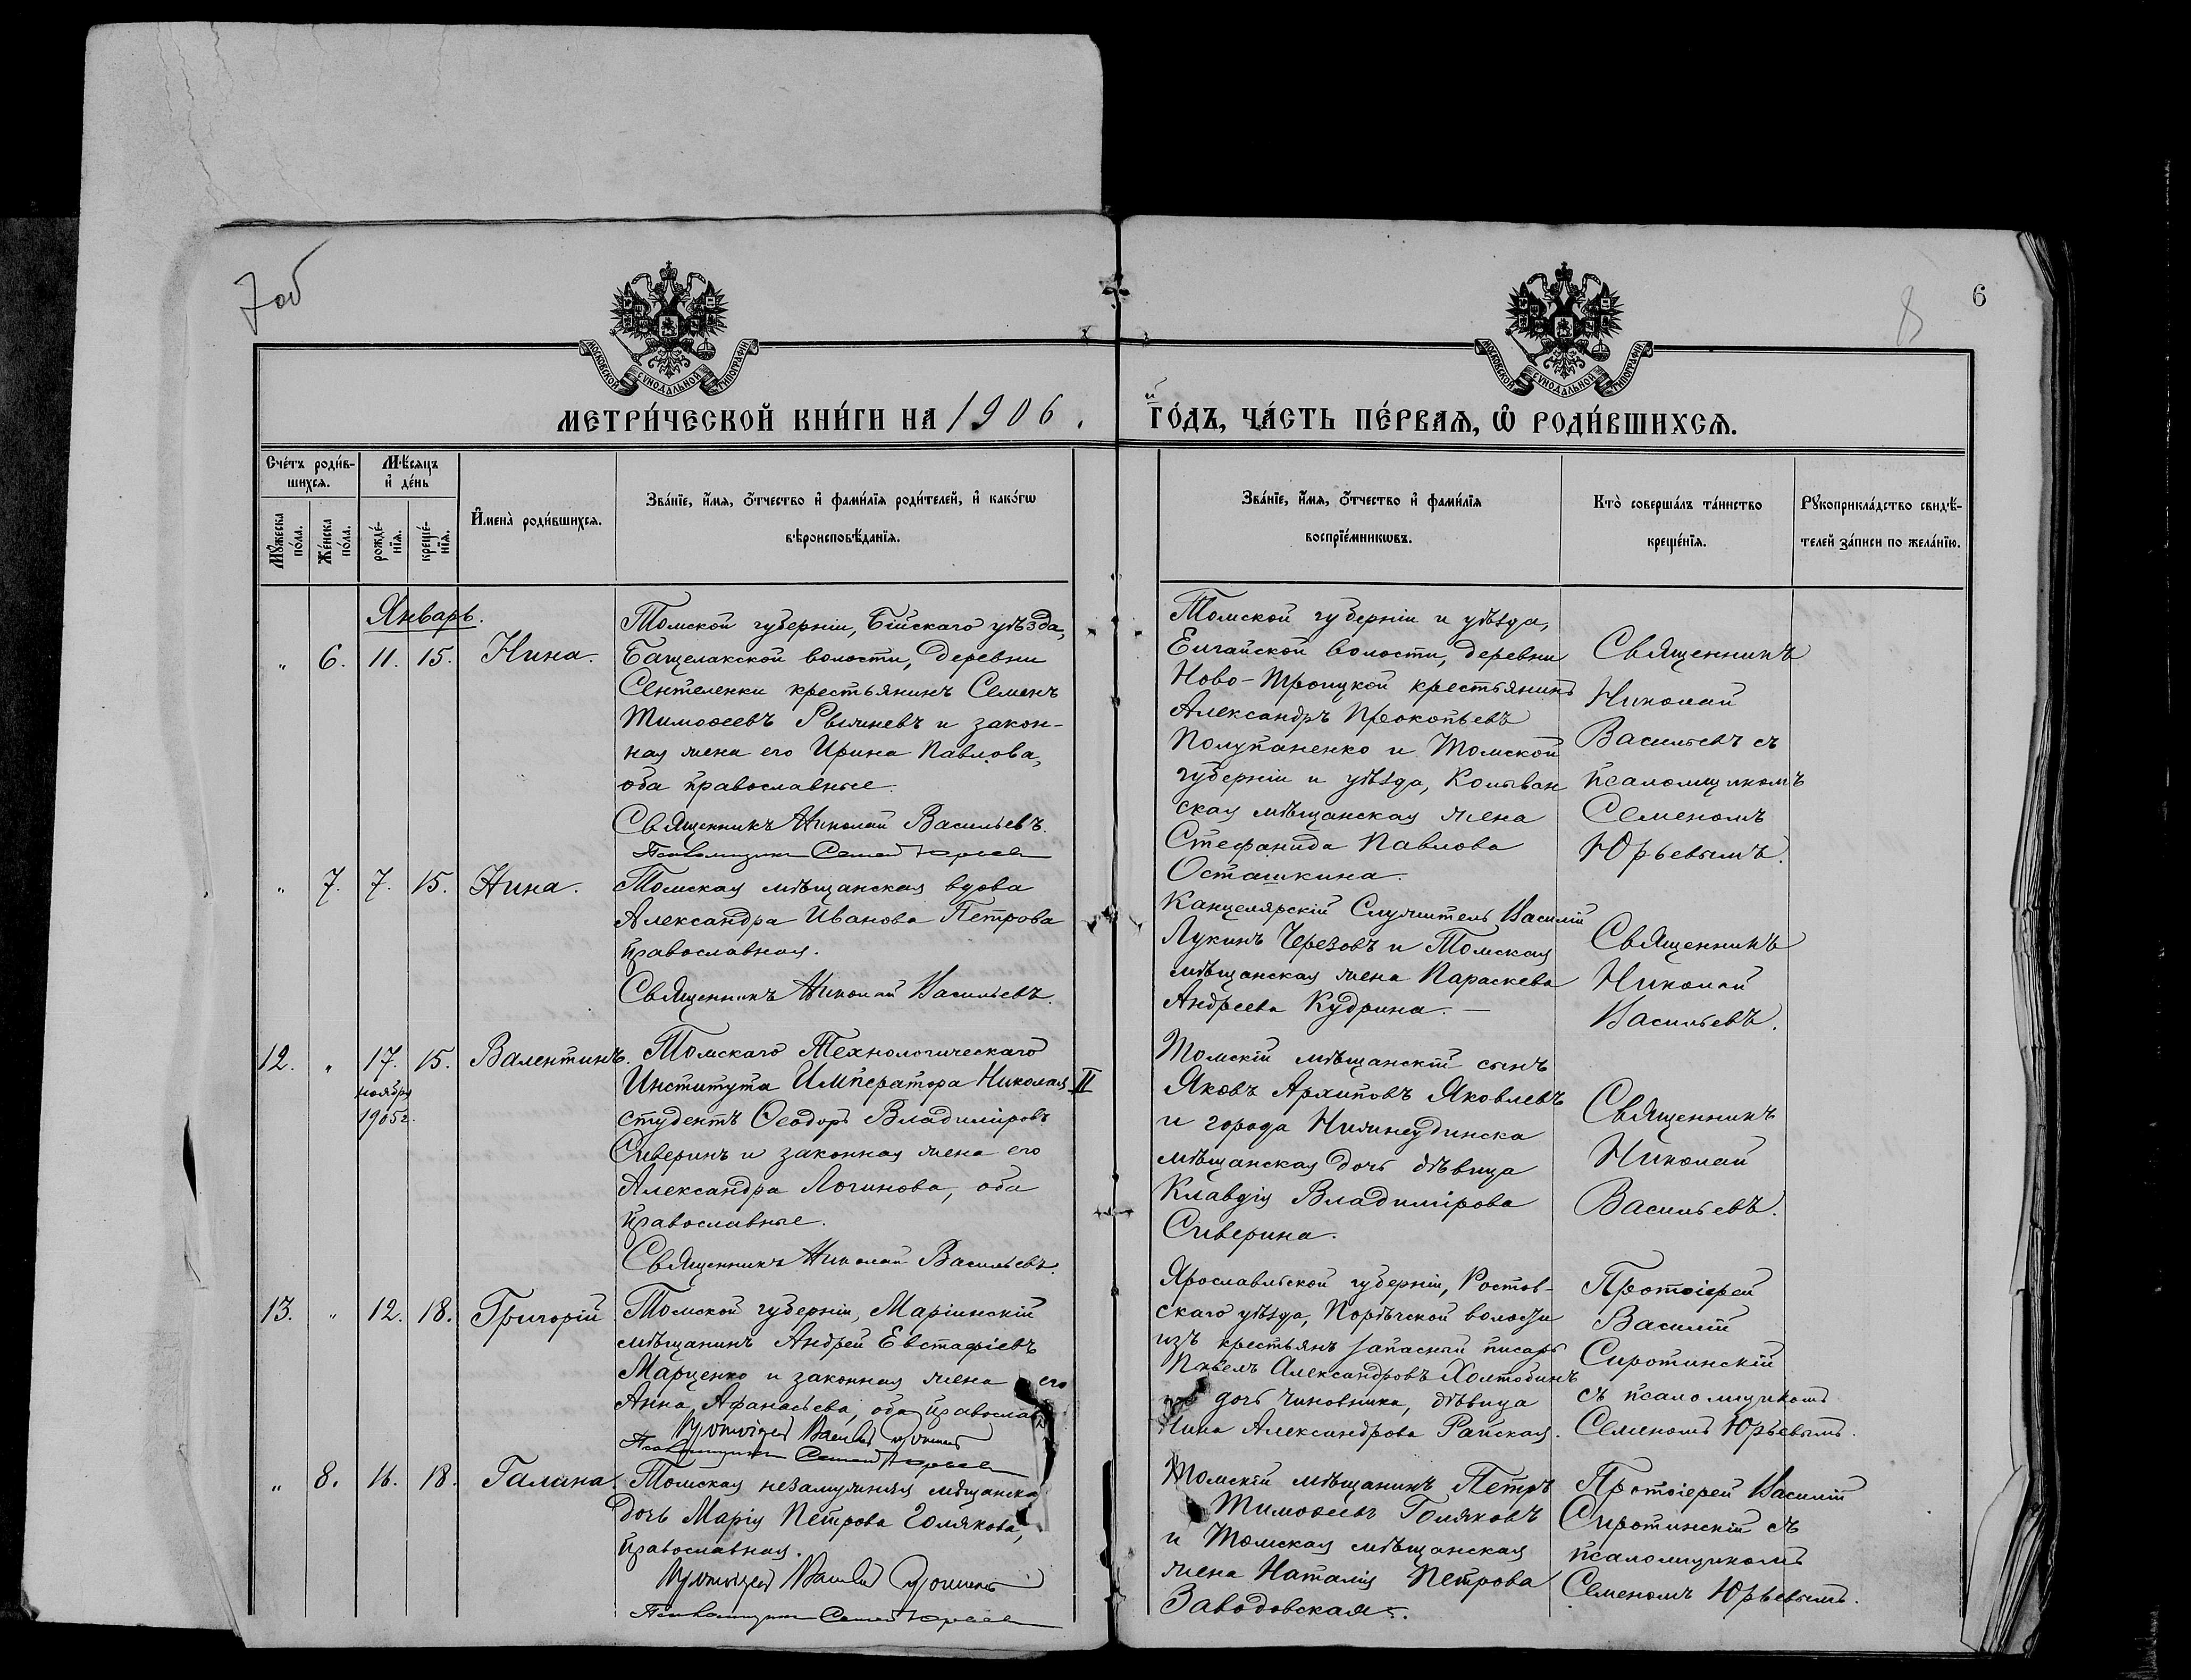 7об
8
6
МОСКОВСКОЙ СѴНОДАЛЬНОЙ ТИПОГРАФІИ
МОСКОВСКОЙ СѴНОДАЛЬНОЙ ТИПОГРАФІИ
МЕТРИ́ЧЕСКОЙ КНИ́ГИ НА 1906.
й ГО́ДЪ, ЧА́СТЬ ПЕ́РВАѦ, Ѽ РОДИ́ВШИХСѦ.
Счéтъ роди́в-
шихсѧ.
Мѣ́сѧцъ
и҆ де́нь
Мꙋ́жеска
по́ла.
Же́нска
по́ла.
рожде́-
нїѧ.
креще́-
нїѧ.
И҆мена̀ роди́вшихсѧ.
Зва́нїе, и҆́мѧ, ѻ҆́тчество и҆ фами́лїѧ роди́телей, и҆ како́гѡ
вѣроисповѣ́данїѧ.
Зва́нїе, и҆́мѧ, ѻ҆́тчество и҆ фами́лїѧ
воспрїе́мникѡвъ.
Кто̀ соверша́лъ та́инство
креще́нїѧ.
Рꙋкоприкла́дство свидѣ́-
телей за́писи по жела́нїю.
Январь.
" 6. 11. 15. Нина.
Томской губерніи, Бійскаго уѣзда,
Бащелакской волости, деревни
Сентелека крестьянинъ Семенъ
Тимоѳеевъ и закон-
ная жена его Ирина Павлова,
оба православные.
Священникъ Николай Васильевъ.
Псаломщикъ Семенъ Юрьевъ
Томской губерніи и уѣзда,
Елгайской волости, деревни
Ново-Троицкой крестьянинъ
Александръ Прокопьевъ
Полупаненко и Томской
губерніи и уѣзда, Колыван
ская мѣщанская жена
Стефанида Павлова
Осташкина.
Священникъ
Николай
Васильевъ съ
псаломщикомъ
Семеномъ
Юрьевымъ.
" 7. 7. 15. Нина.
Томская мѣщанская вдова
Александра Иванова Петрова
православная.
Священникъ Николай Васильевъ.
Канцелярскій Служитель Василій
Лукинъ Черезовъ и Томская
мѣщанская жена Параскева
Андреева Кудрина. —
Священникъ
Николай
Васильевъ.
12. " 17. 15. Валентинъ.
ноября
1905г.
Томскаго Технологическаго
Института Императора Николая II
студентъ Ѳеодоръ Владиміровъ
Сиверинъ и законная жена его
Александра Логинова, оба
православные.
Священникъ Николай Васильевъ.
Томскій мѣщанскій сынъ
Яковъ Архиповъ Яковлевъ
и города Нижнеудинска
мѣщанская дочь дѣвица
Клавдія Владимірова
Сиверина.
Священникъ
Николай
Васильевъ.
13. " 12. 18. Григорій
Томской губерніи, Маріинскій
мѣщанинъ Андрей Евстафіевъ
Марценко и законная жена его
Анна Афанасьева, оба православ
Протоіерей Василій Сиротинскій
Псаломщикъ Семенъ Юрьевъ
Ярославльской губерніи, Ростов-
скаго уѣзда, Порѣчской волости
изъ крестьянъ запасный писарь
Павелъ Александровъ Холтобинъ
дочь чиновника, дѣвица
Нина Александрова Райская.
Протоіерей
Василій
Сиротинскій
съ псаломщикомъ
Семеномъ Юрьевымъ.
" 8. 16. 18. Галина.
Томская незамужняя мѣщанска
дочь Марія Петрова Голякова,
православная.
Протоіерей Василій Сиротинскій
Псаломщикъ Семенъ Юрьевъ
Томскій мѣщанинъ Петръ
Тимоѳеевъ Голяковъ
и Томская мѣщанская
жена Наталія Петрова
Заводовская.
Протоіерей Василій
Сиротинскій съ
псаломщикомъ
Семеномъ Юрьевымъ.